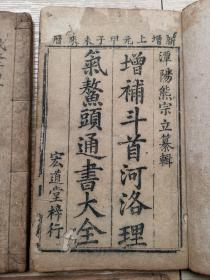 新增上元甲子未來曆
潭陽熊宗立纂輯
增補斗首河洛理
氣鰲頭通書大全
宏道堂梓行